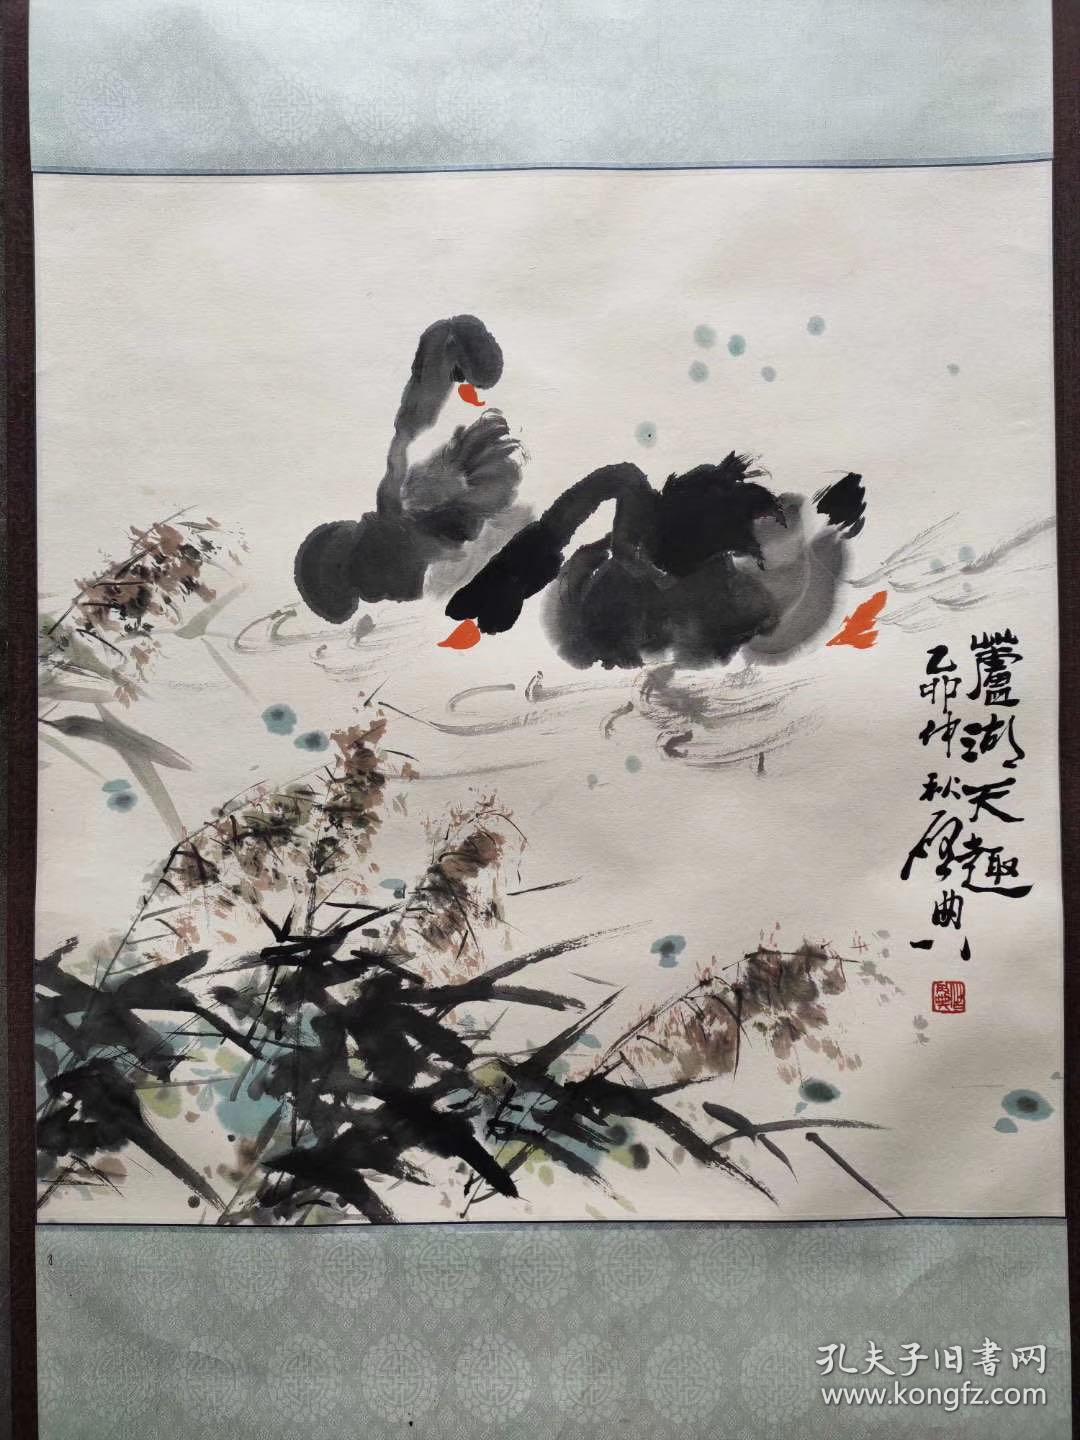 蘆湖天趣
乙卯仲秋
孔夫子旧書网
www.kongfz.com
8